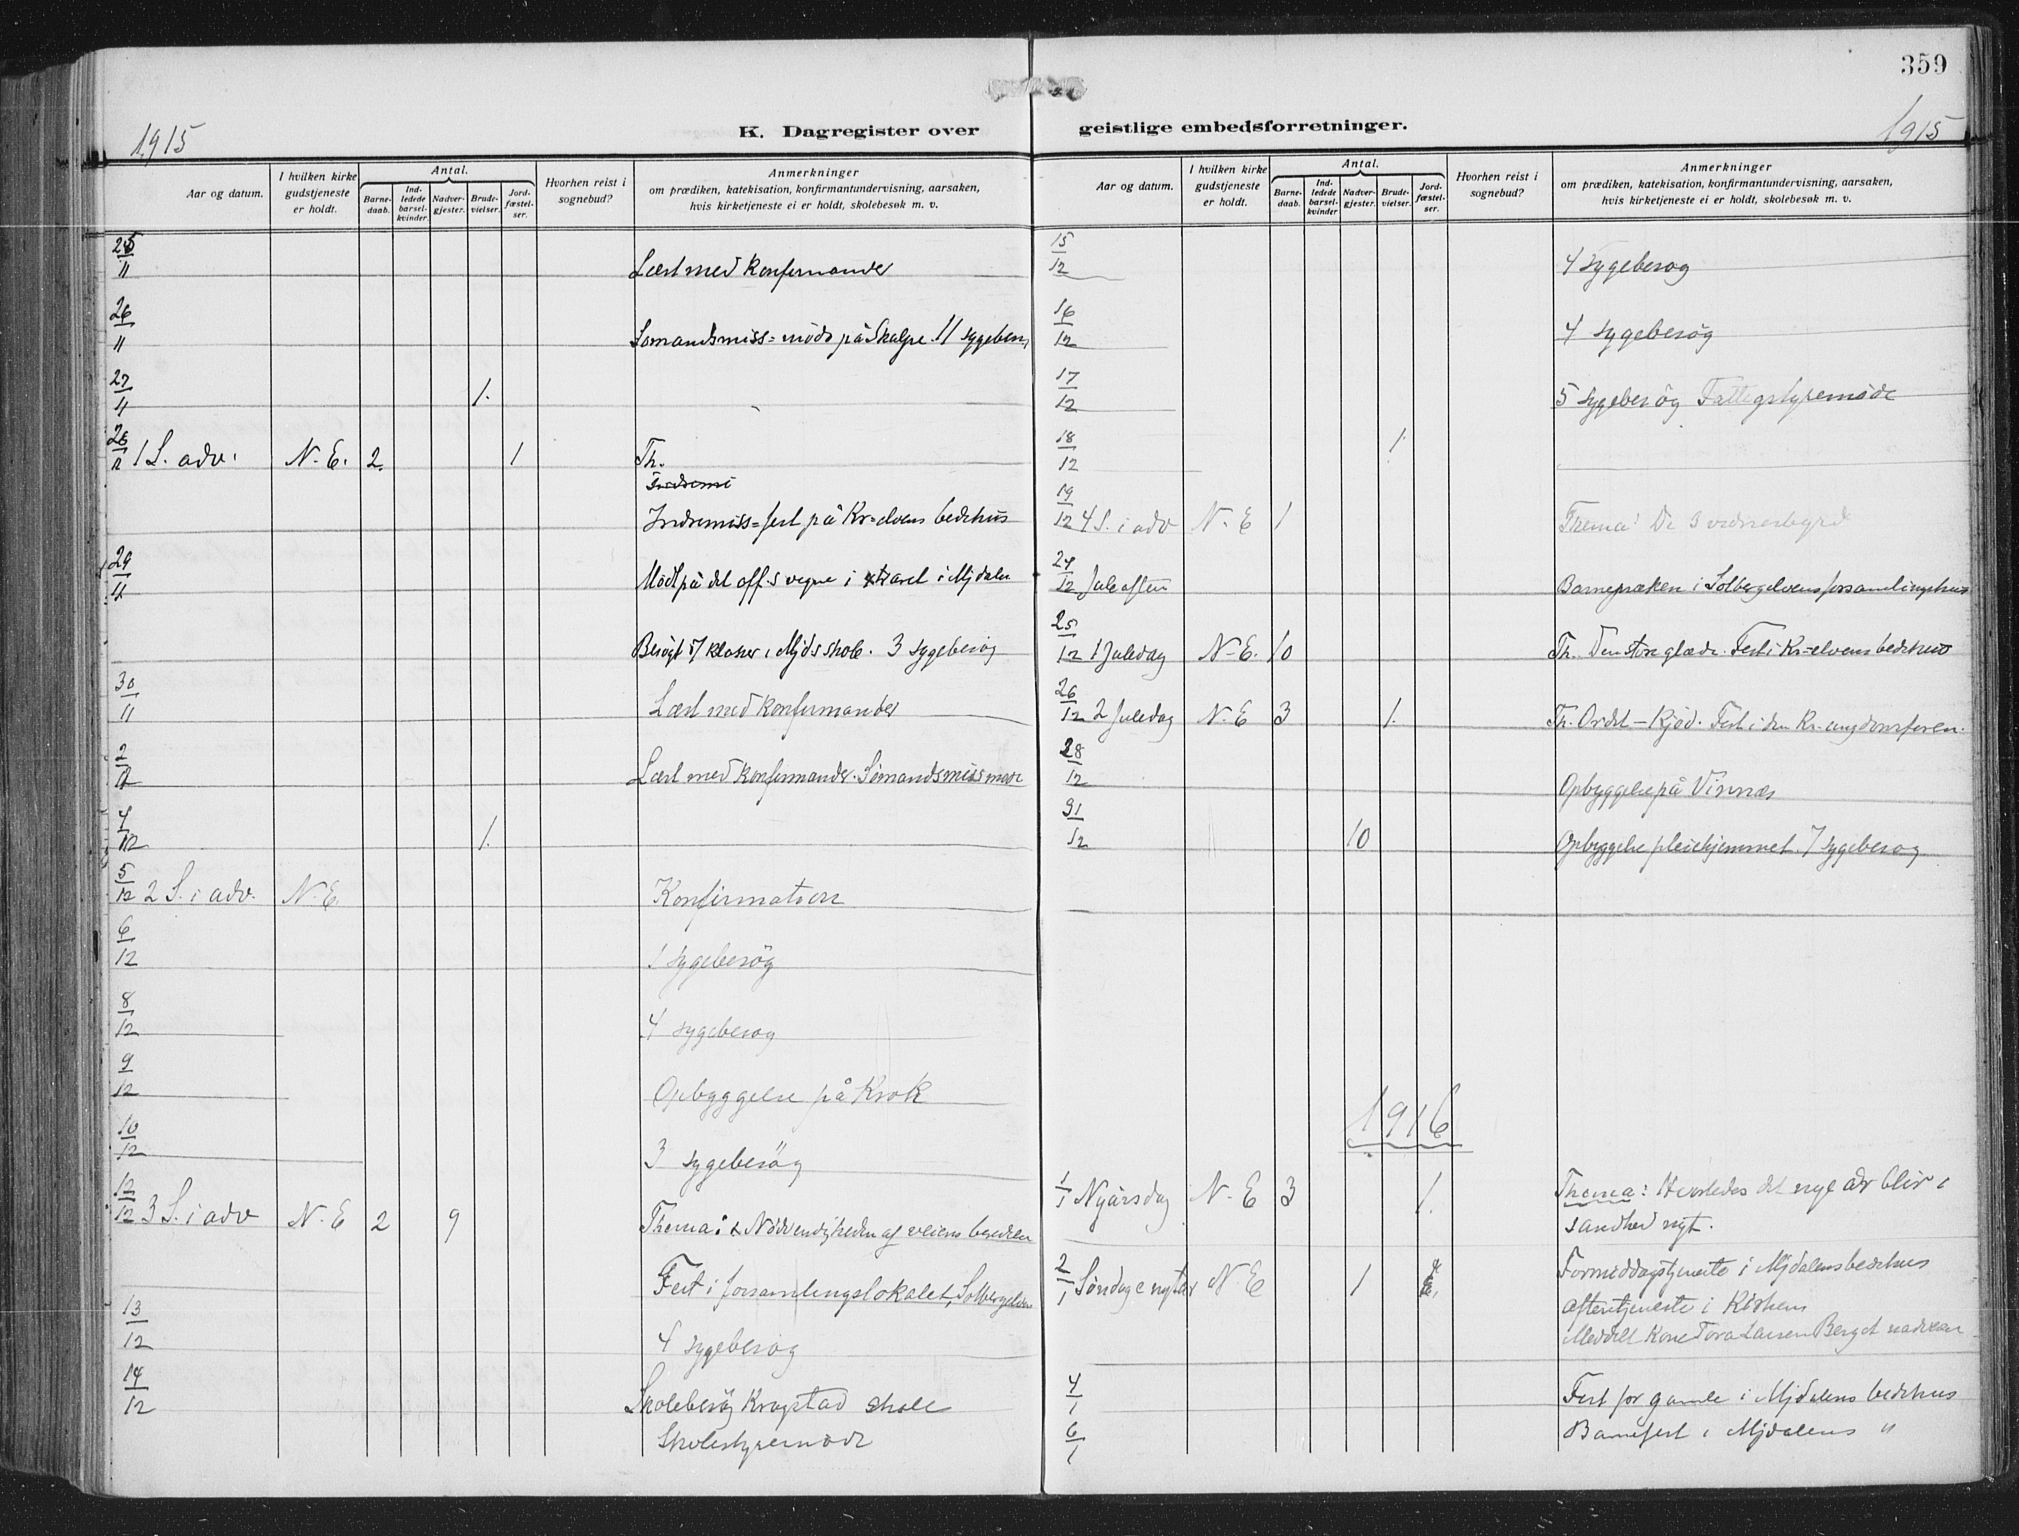 359
1915
K. Dagregister over geistlige embedsforretninger.
1915
Aar og datum.
I hvilken kirke gudstjeneste er holdt.
Antal.
Barne-daab.
Ind-ledede barsel-kvinder.
Nadver-gjester.
Brude-vielser.
Jord-fæstel-ser.
Hvorhen reist i sognebud?
Anmerkninger
om prædiken, katekisation, konfirmantundervisning, aarsaken,
hvis kirketjeneste ei er holdt, skolebesøk m. v.
25/11 Læst med Konfirmander
26/11 Sømandsmiss= møde på 11 sygebesøg
27/11 1.
28/11 1 S. adv. N. E. 2 1 Th.
Indremiss=fest på Kr=elvens bedehus
29/11 Mødt på det off.s vegne i i Mjdalen
Besøgt 5/7 klasser i Mjds skole. 3 sygebesøg
30/11 Læst med Konfirmander
2/12 Læst med Konfirmander. Sømandsmiss møde
4/12 1.
5/12 2 S. i adv. N. E. Konfirmation
6/12 1 sygebesøg
8/12 4 sygebesøg
9/12 Opbyggelse på Krok
10/12 3 sygebesøg
12/12 3 S. i adv N. E 2 9 Thema: Nødvendigheden af veiens
Fest i forsamlingslokalet, Solbergelven
13/12 4 sygebesøg
14/12 Skolebesøg Krogstad skole
Skolestyremøde
Aar og datum.
I hvilken kirke gudstjeneste er holdt.
Antal.
Barne-daab.
Ind-ledede barsel-kvinder
Nadver-gjester.
Brude-vielser.
Jord-fæstel-ser.
Hvorhen reist i sognebud?
Anmerkninger
om prædiken, katekisation, konfirmantundervisning, aarsaken,
hvis kirketjeneste ei er holdt, skolebesøk m. v.
15/12 4 sygebesøg
16/12 4 sygebesøg
17/12 5 sygebesøg Fattigstyremøde
18/12 1.
19/12 4 S. i adv N. E 1 Thema: De 3 vidnesbyrd
24/12 Juleaften Barnepræken i Solbergelvens forsamlingshus
25/12 1 Juledag N. E. 10 Th. Den store glæde. Fest i Kr-elvens bedehus
26/12 2 Juledag N. E 3 1. Th. Ordet – Kjød. Fest i den Kr. ungdomsforen.
28/12 Opbyggelse på Vinnæs
31/12 10 Opbyggelse pleiehjemmet. 7 sygebesøg
1916
1/1 Nyårsdag N. E 3 1. Thema: Hvorledes det nye år blir i
sandhed nyt.
2/1 Søndag e nytår N. E 1 Formiddagstjeneste i Mjdalens bedehus
aftentjeneste i Kirken
Meddelt Kone Tora Larsen Berget nadveren
4/1 Fest for gamle i Mjdalens bedehus
6/1 Barnefest i Mjdalens "